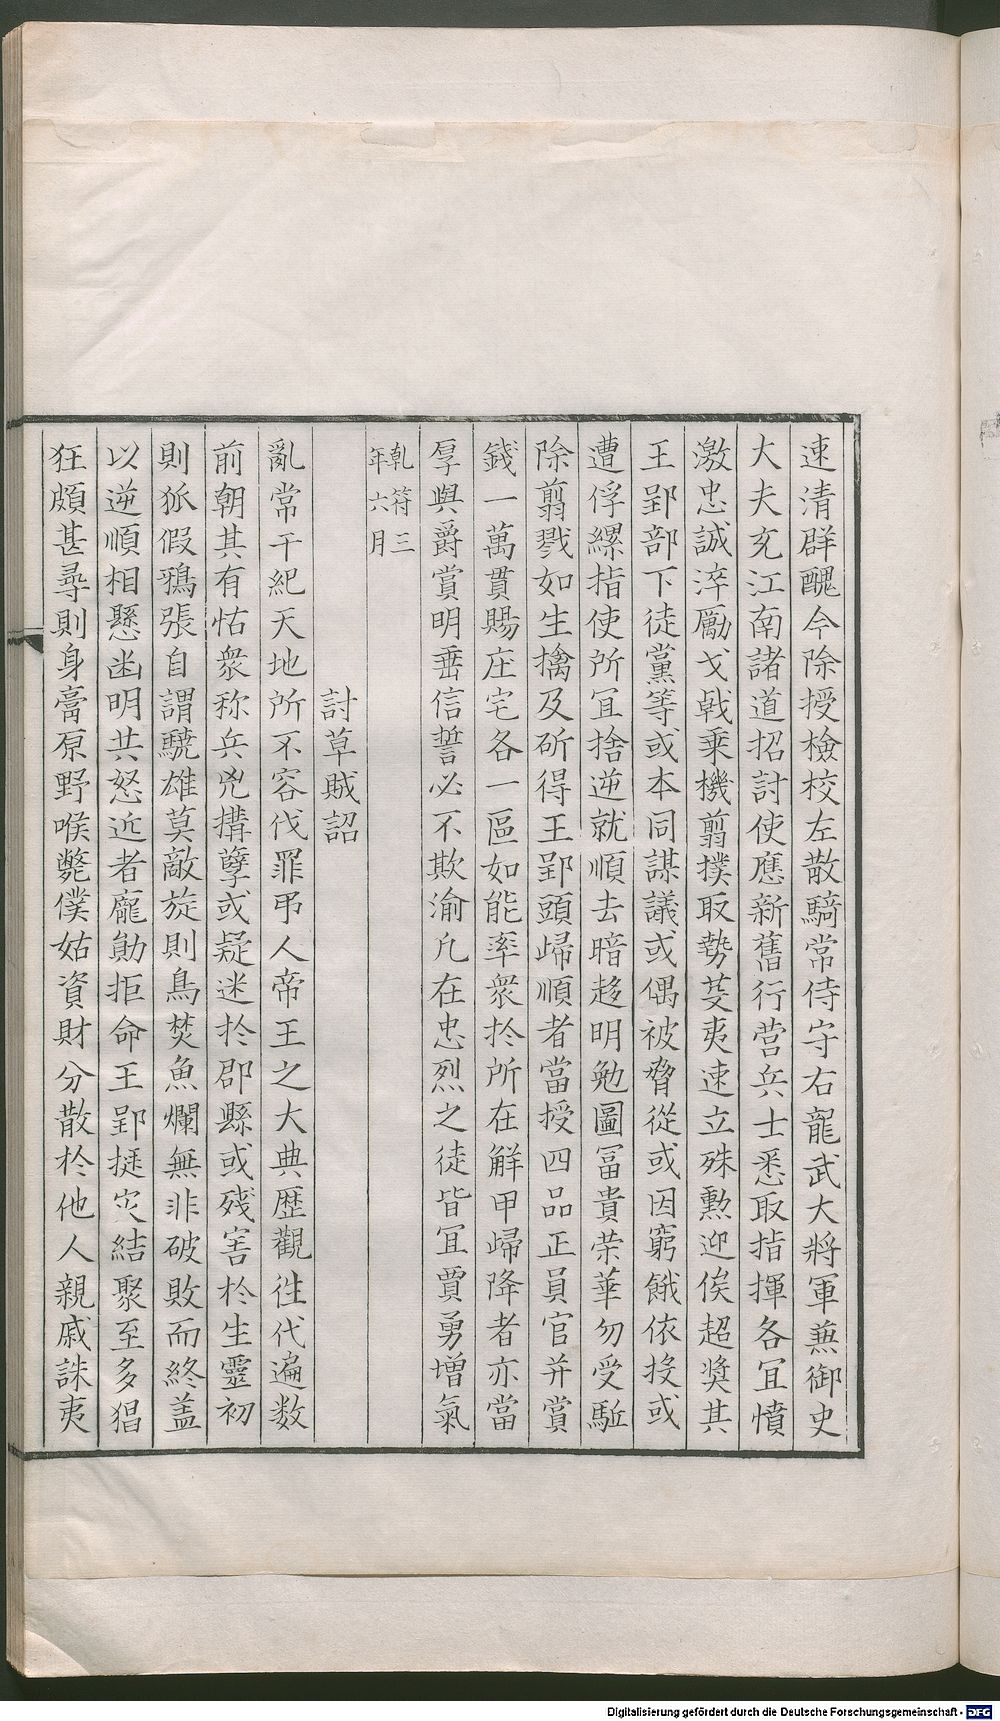 速清群醜今除授檢校左散騎常侍守右龍武大將軍兼御史
大夫充江南諸道招討使應新舊行营兵士悉取指揮各冝憤
激忠誠淬勵戈戟乗機翦撲取勢芟夷速立殊勲迎俟超奨其
王郢部下徒黨等或本同謀議或偶被脅從或因窮餓依投或
遭俘縲指使所冝捨逆就順去暗趍明勉圖冨貴荣華勿受駈
除翦戮如生擒及斫得王郢頭歸順者當授四品正員官并賞
錢一萬貫賜庄宅各一區如能率衆扵所在觧甲歸降者亦當
厚與爵賞明垂信誓必不欺渝凢在忠烈之徒皆冝賈勇增氣
乹符三
年六月
討草賊詔
亂常干紀天地所不容伐罪弔人帝王之大典歴觀徃代遍数
前朝其有怙衆称兵兇搆孽或疑迷扵郡縣或残害扵生靈初
則狐假鴉張自謂驍雄莫敵旋則鳥焚魚爛無非破敗而終盖
以逆順相懸幽明共怒近者龐勛拒命王郢挻灾結聚至多猖
狂頗甚尋則身膏原野喉斃僕姑資財分散扵他人親戚誅夷
Digitalisierung gefördert durch die Deutsche Forschungsgemeinschaft - DFG